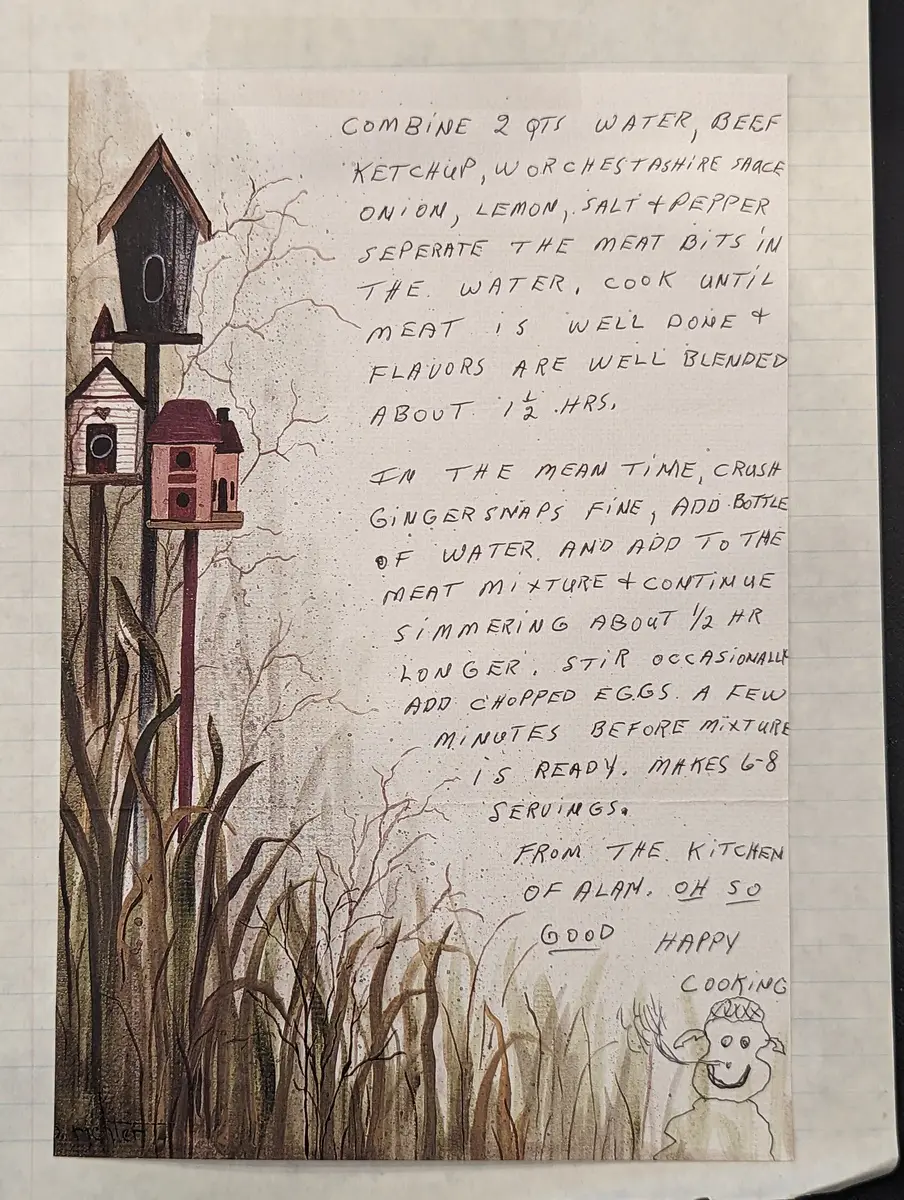 COMBINE 2 QTS WATER, BEEF
KETCHUP, WORCHESTASHIRE SAUCE
ONION, LEMON, SALT + PEPPER
SEPERATE THE MEAT BITS IN
THE WATER, COOK UNTIL
MEAT IS WELL DONE +
FLAVORS ARE WELL BLENDED
ABOUT 1 1/2 HRS.
IN THE MEAN TIME, CRUSH
GINGERSNAPS FINE, ADD BOTTLE
OF WATER AND ADD TO THE
MEAT MIXTURE + CONTINUE
SIMMERING ABOUT 1/2 HR
LONGER. STIR OCCASIONALLY
ADD CHOPPED EGGS. A FEW
MINUTES BEFORE MIXTURE
IS READY. MAKES 6-8
SERVINGS.
FROM THE KITCHEN
OF ALAN. OH SO
GOOD HAPPY
COOKING